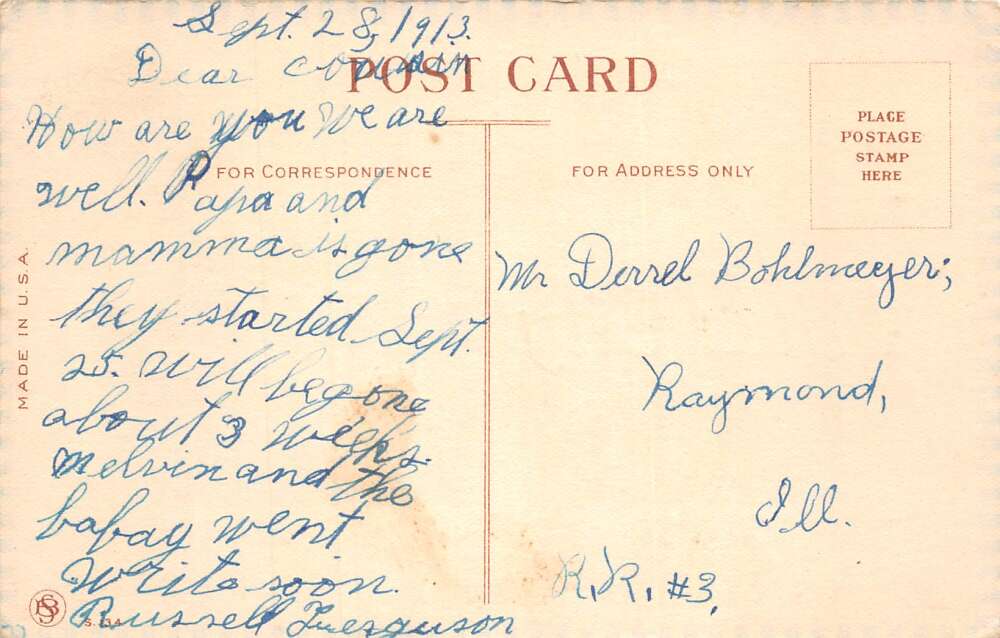 Sept. 28, 1913.
Dear cousin
How are you we are
well. Papa and
mamma is gone
they started Sept.
25. will be gone
about 3 weeks.
Melvin and the
babay went
Write soon.
Russell Ferguson
POST CARD
FOR CORRESPONDENCE
FOR ADDRESS ONLY
PLACE
POSTAGE
STAMP
HERE
Mr Derrel Bohlmeyer,
Raymond,
Ill.
R.R. #3,
MADE IN U.S.A.